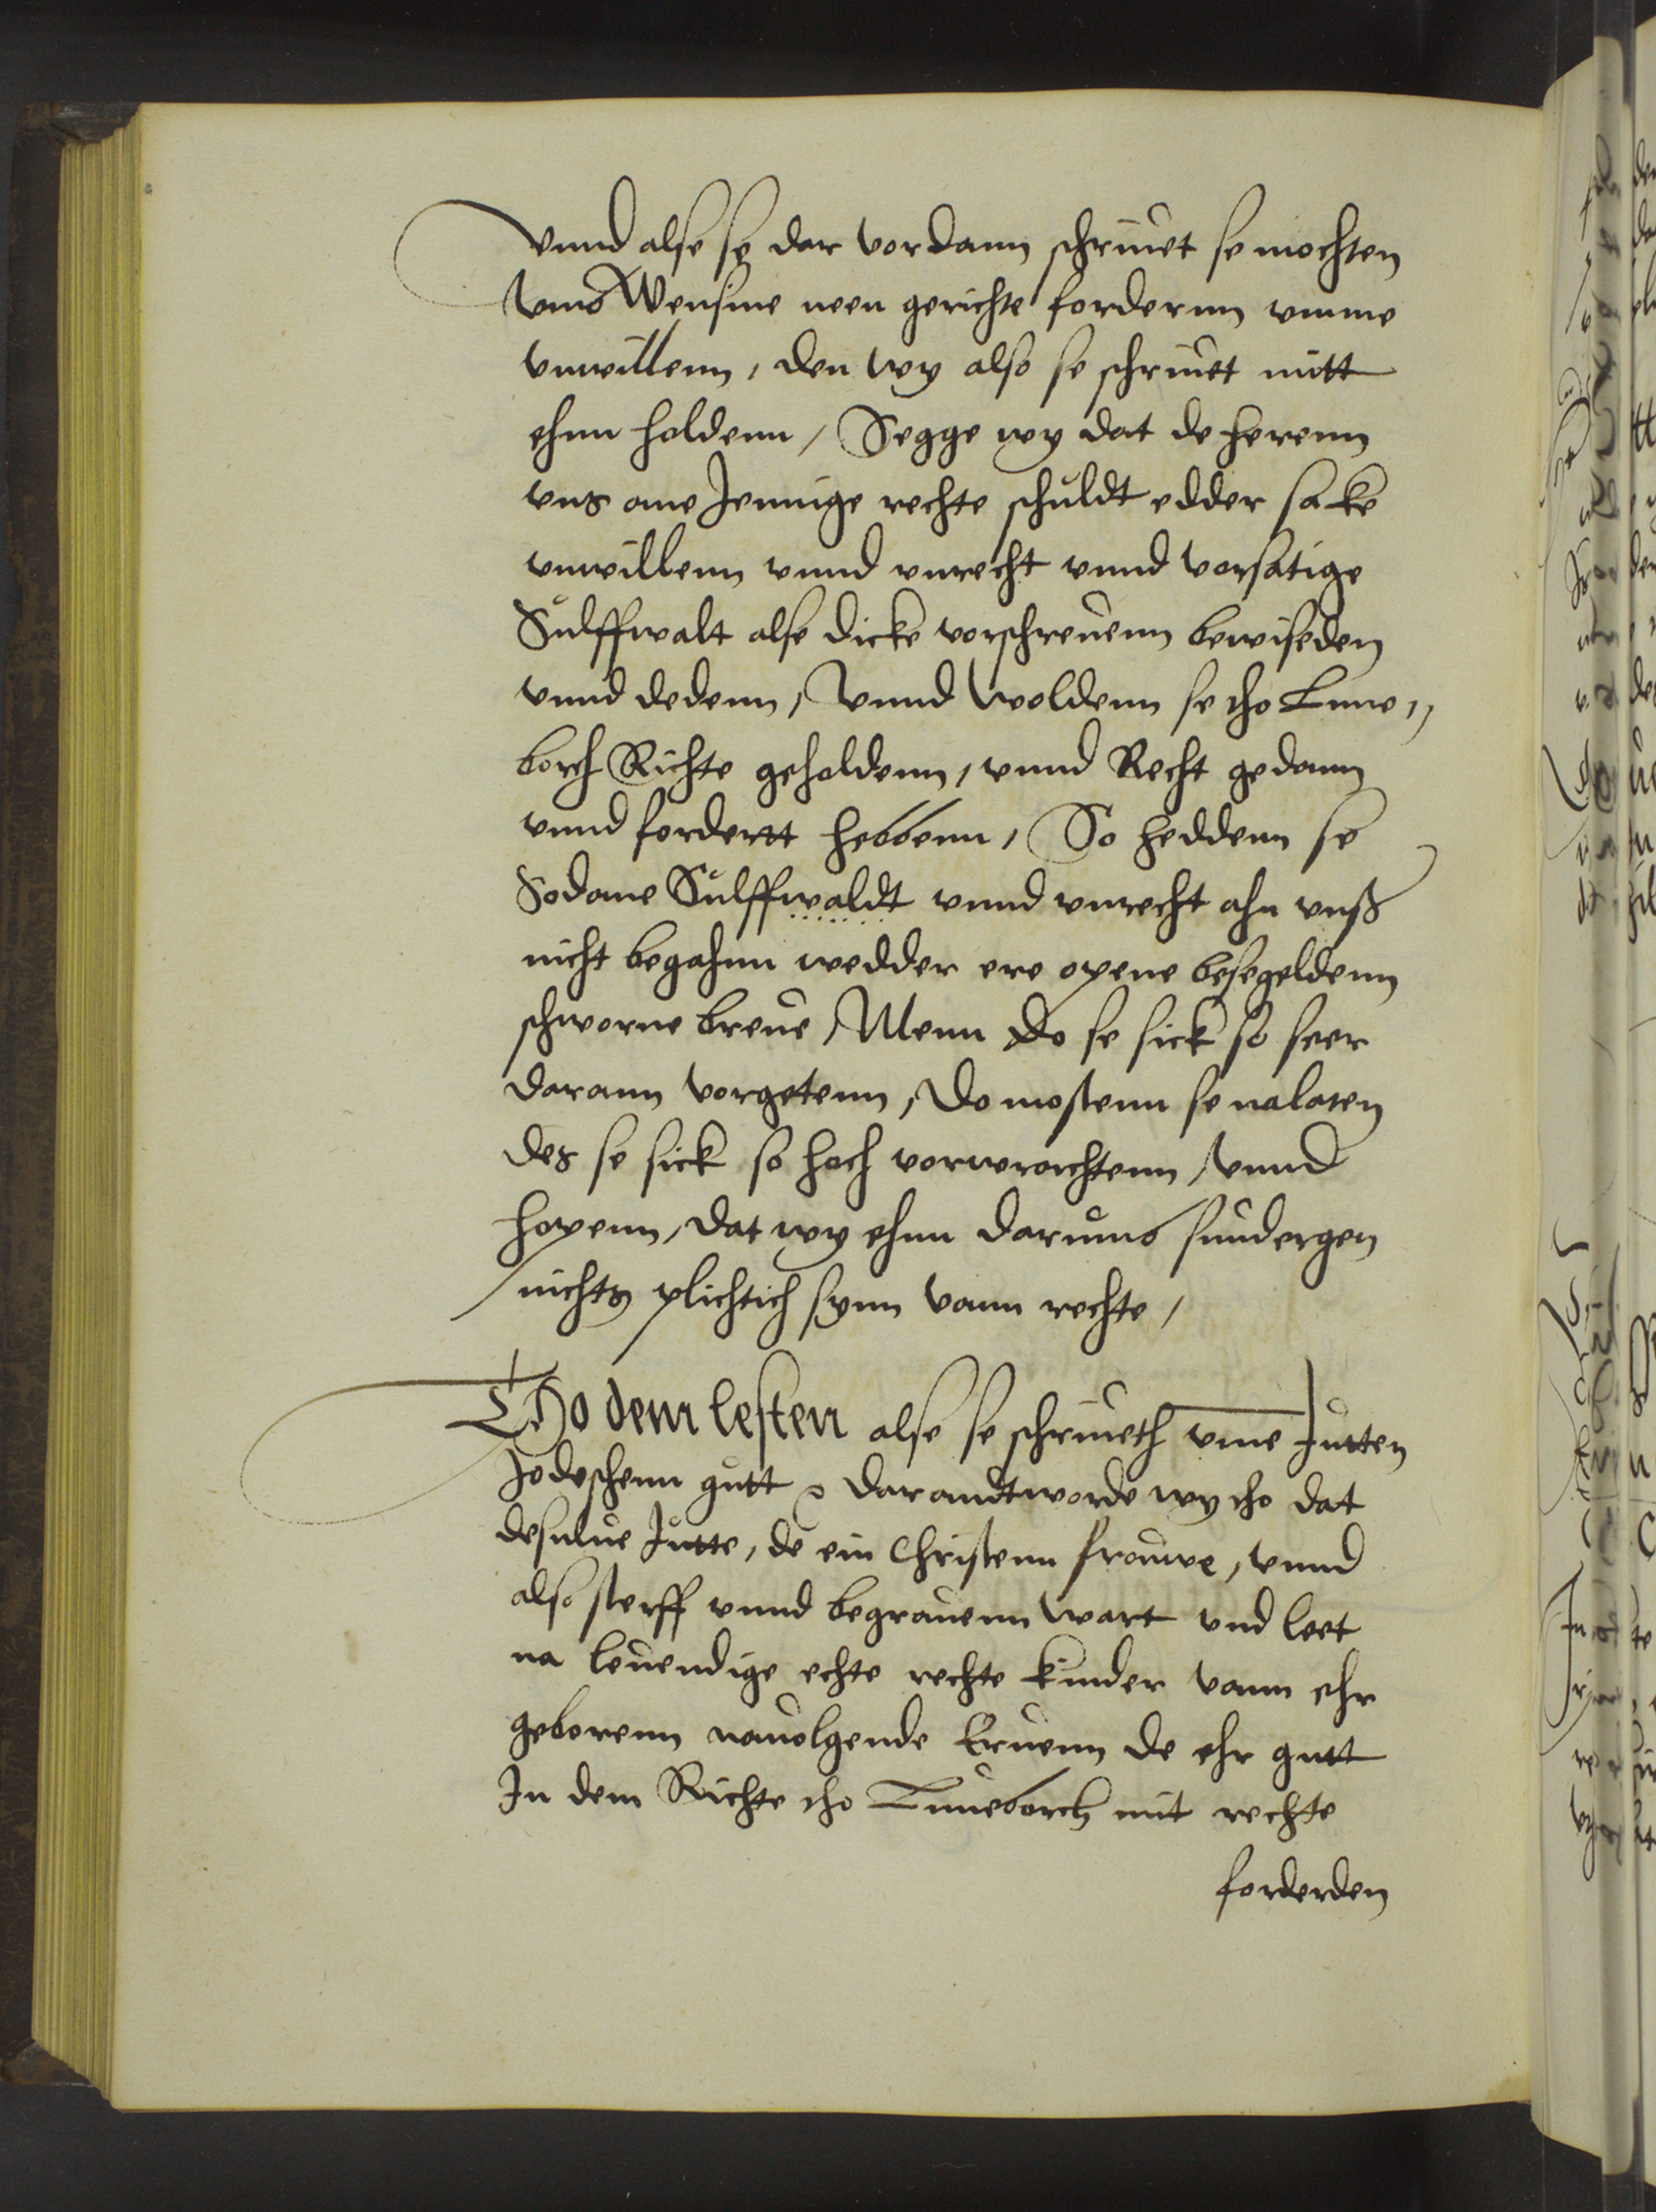 Vnnd alse se dar vordann schriuet se mochten
vmb Wensine neen gerichte forderenn vmme
vnwillenn, den wy also se schriuet mitt
ehnn holdenn, Segge wy dat de herenn
vns ane Jennige rechte schuldt edder sake
vnwillenn vnnd vnrecht vnnd vorsatige
Sulffwalt alse dicke vorschreuenn bewiseden
vnnd dedenn, Vnnd woldenn se tho Lune,,
borch Richte geholdenn, vnnd Recht gedann
vnnd fordertt hebbenn, So heddenn se
Sodane Sulffwaldt vnnd vnrecht ahn vnß
nicht begahnn wedder ere opene besegeldenn
schworne breue, Menn do se sick so seer
darann vorgetenn, do mostenn se nalaten
des se sick so hoch vorwrachtenn, vnnd
hopenn, dat wy ehnn darumb sundergen
nichts plichtich synn vann rechte,
THo dem lesten alse se schriueth vme Jutten
Jodeschenn gutt, darandtworde wy tho dat
desulue Jutte, de ein Christenn frouwe, vnnd
also sterff vnnd begrauenn wart vnd leet
na leuendige echte rechte kinder vann ehr
geborenn nauolgende Eruenn de ehr gutt
In dem Richte tho Luneborch mit rechte
forderden